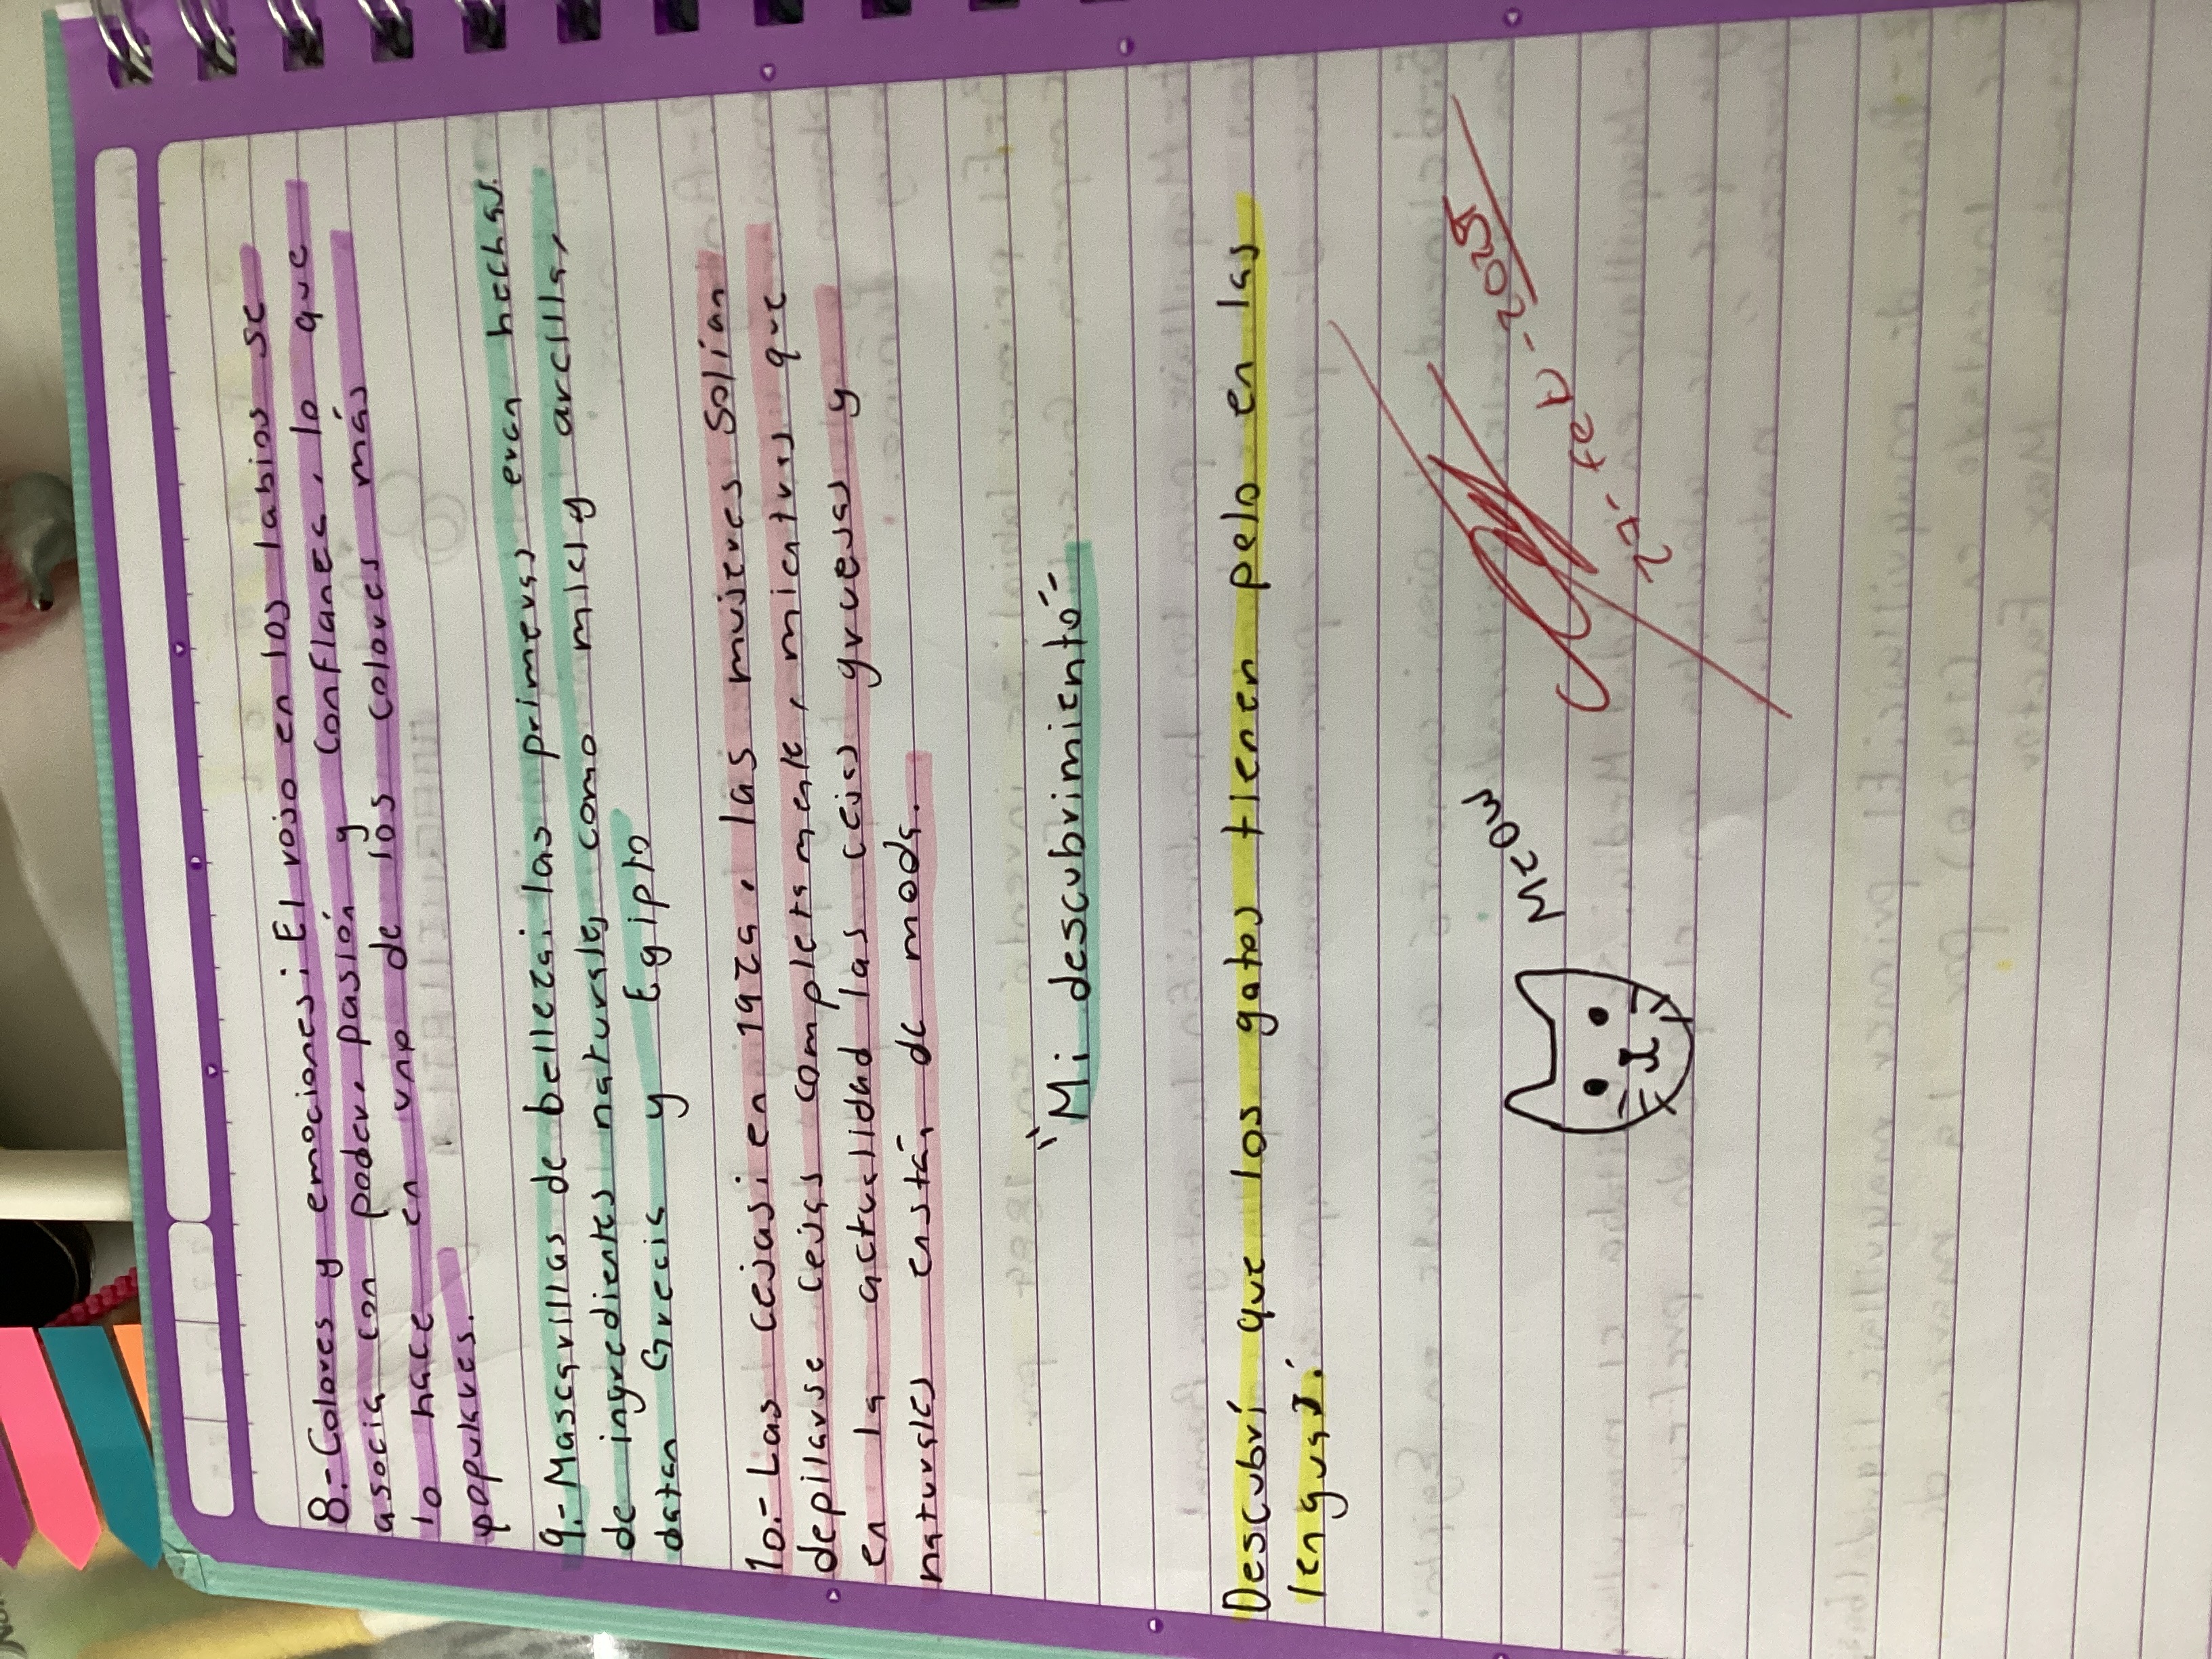 8.- Colores y emociones: El rojo en los labios se
asocia con poder, pasión y confianza, lo que
lo hace en uno de los colores más
populares.
9.- Mascarillas de belleza: las primeras eran hechas
de ingredientes naturales como miel y arcilla,
datan Grecia y Egipto
10.- Las cejas: en, las mujeres solían
depilarse cejas completamente, mientras que
en la actualidad las cejas gruesas y
naturales enstán de moda.
"Mi descubrimiento"
Descubrí que los gatos tienen pelo en las
lenguas.
Meow